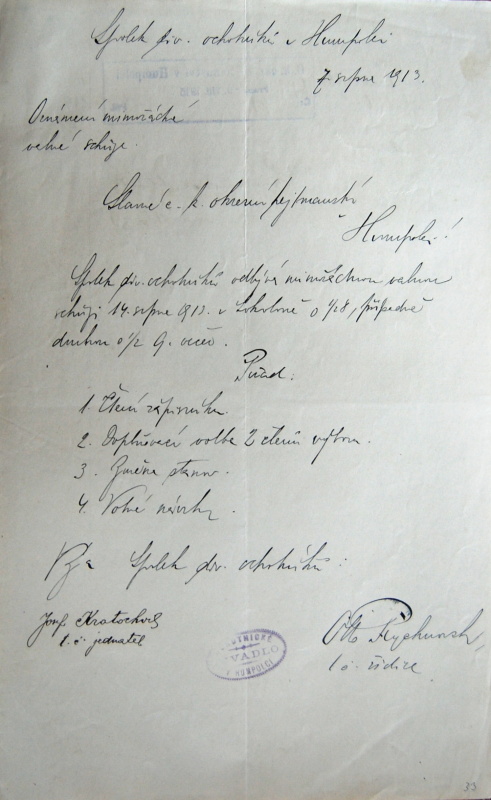 Spolek div. ochotníků v Humpolci
7. srpna 1913.
Oznámení mimořádné
valné schůze.
Slavné c. k. okresní hejtmanství
v Humpolci!
Spolek div. ochotníků odbývá mimořádnou valnou
schůzi 14. srpna 1913. v Sokolovně o ½8, případně
druhou o ½ 9. večer.
Pořad:
1. Čtení zápisníku.
2. Doplňovací volba 2 členů výboru.
3. Změna stanov.
4. Volné návrhy.
Za Spolek div. ochotníků:
Josef Kratochvíl
t. č. jednatel
OCHOTNICKÉ
DIVADLO
V HUMPOLCI
Otto
t. č. ředitel
33